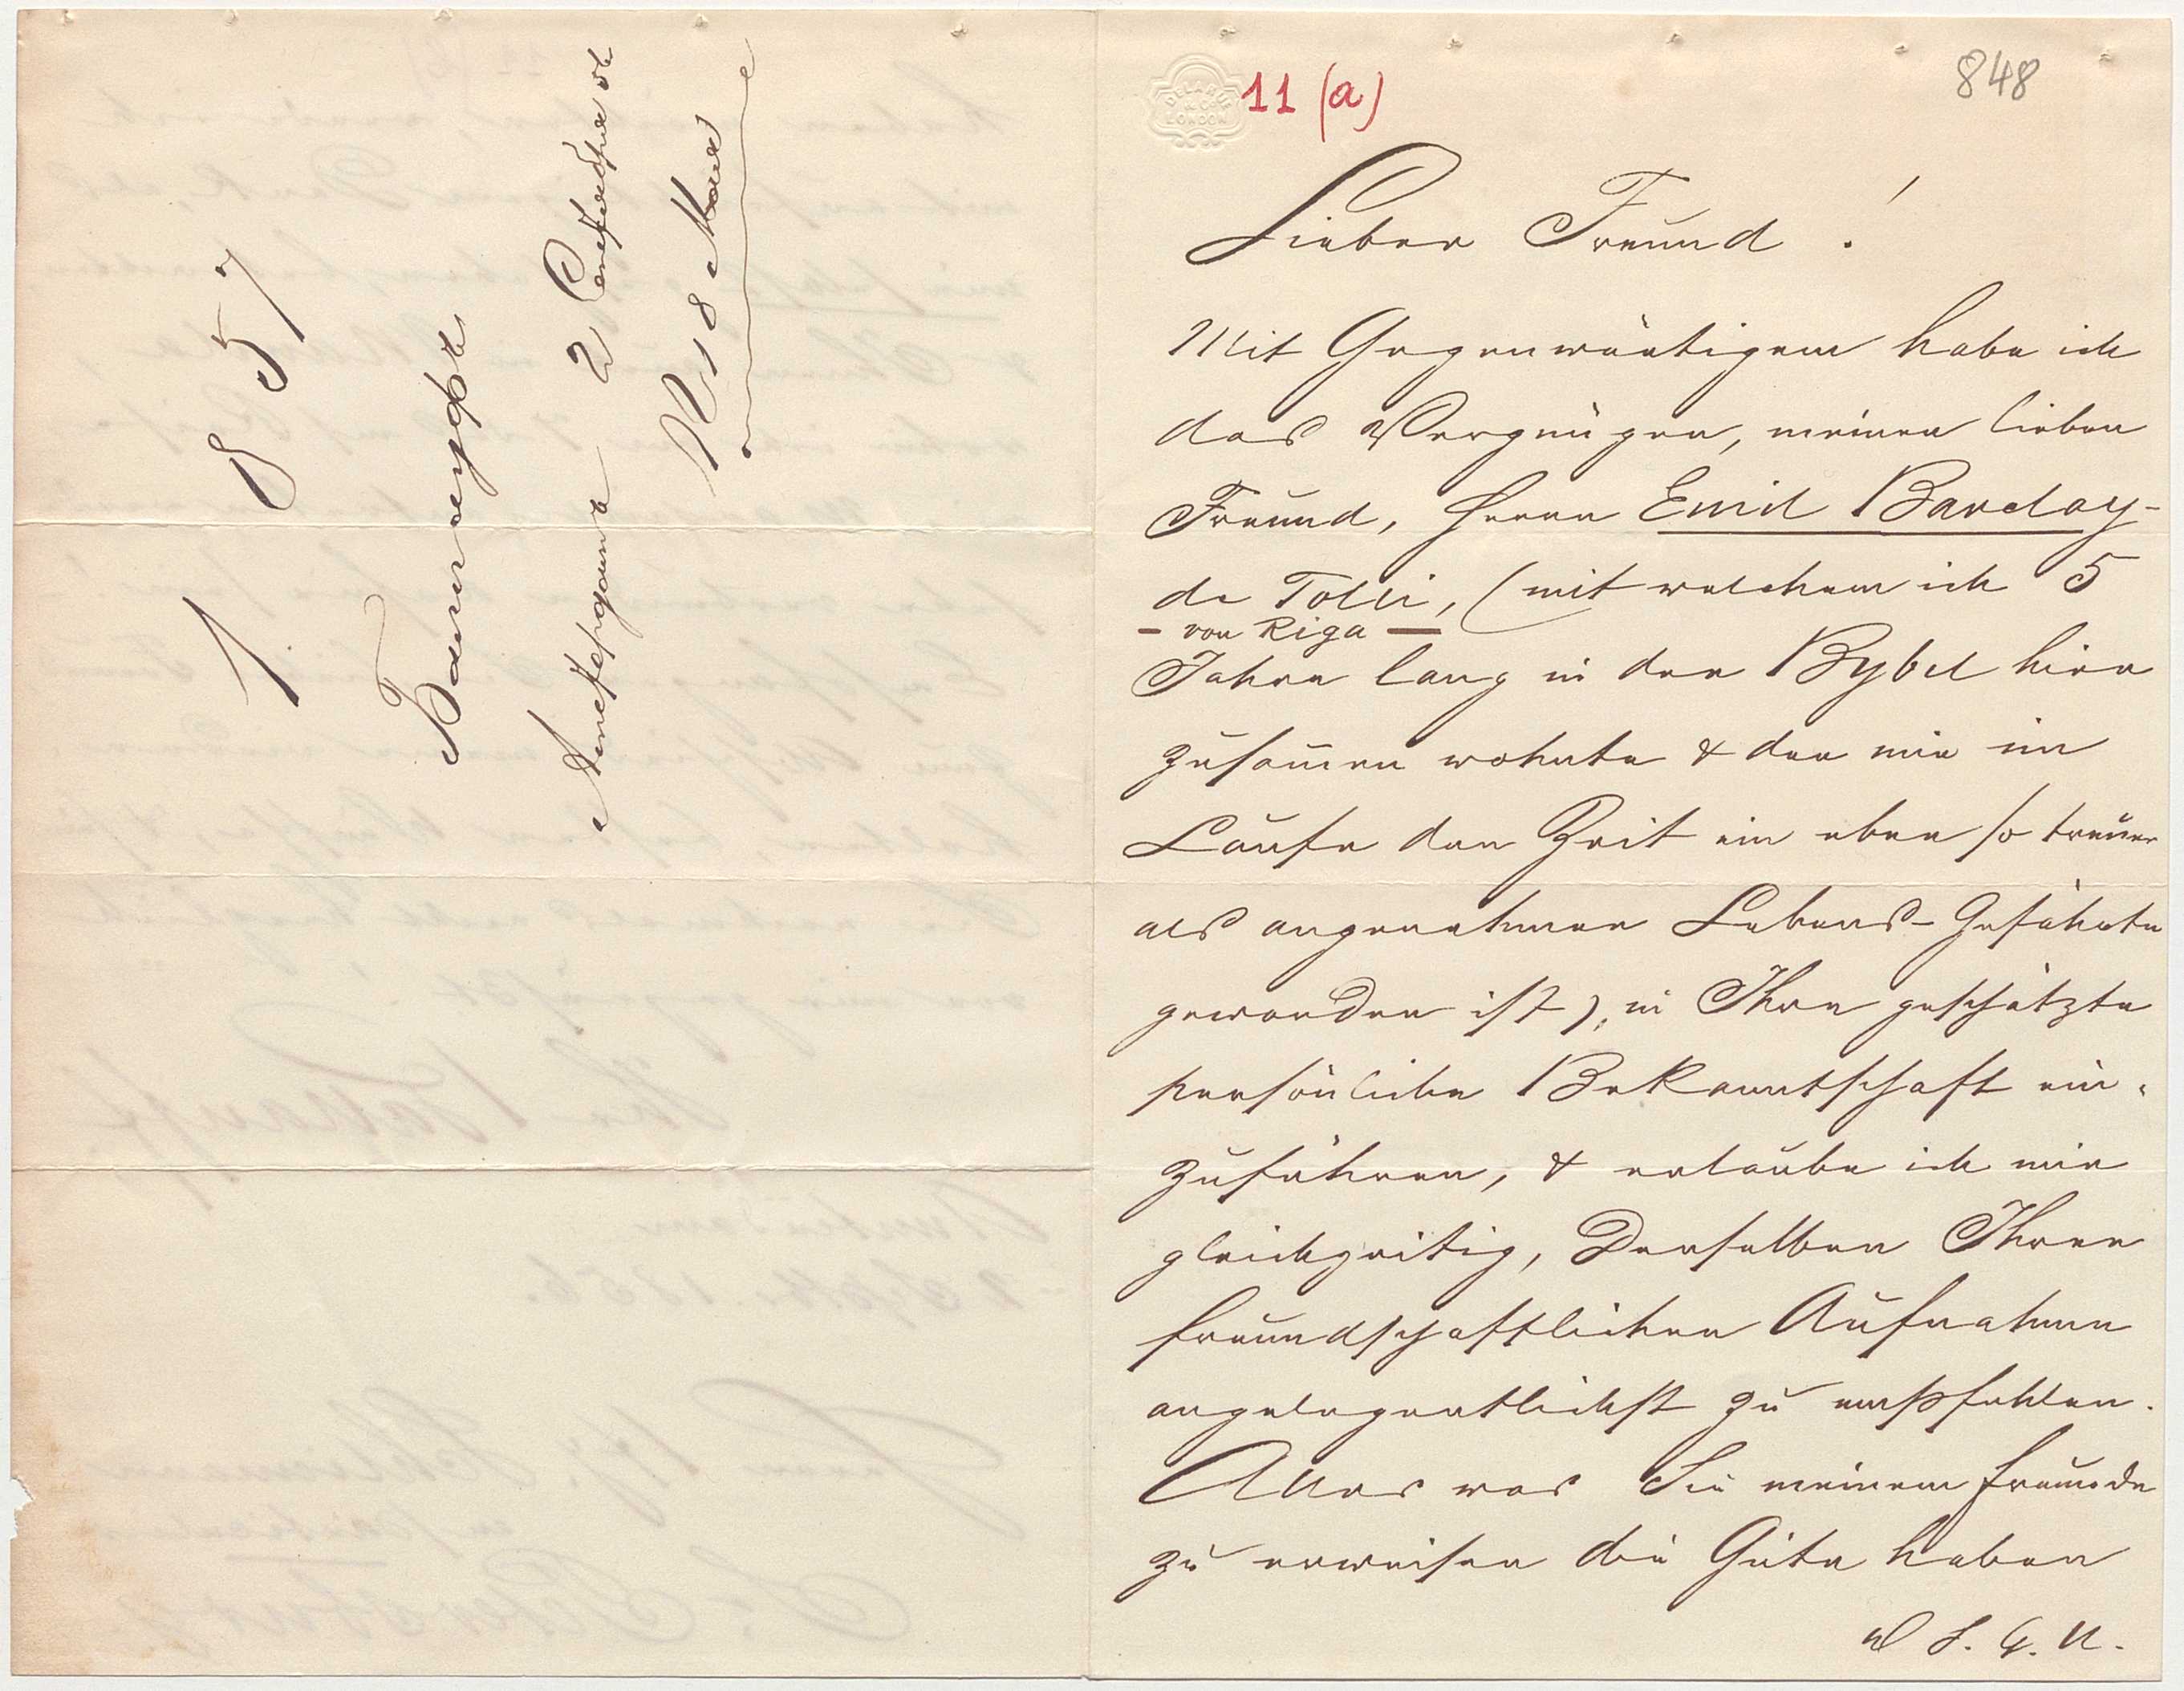 1857
Амстердама 2 Сентября
11 (a)
848
DE LA RUE & CO
LONDON
Lieber Freund!
Mit Gegenwärtigem habe ich
das Vergnügen, meinen lieben
Freund, Herrn Emil Barclay-
de Tolli, (mit welchem ich 5
– von Riga –
Jahre lang in der Bybel hier
zusam̅en wohnte & der mir im
Laufe der Zeit ein eben so treuer
als angenehmer Lebens-Gefährte
geworden ist), in Ihre geschätzte
persönliche Bekanntschaft ein-
zuführen, & erlaube ich mir
gleichzeitig, Denselben Ihrer
freundschaftlichen Aufnahme
angelegentlichst zu empfehlen.
Alles was Sie meinem Freunde
zu erweisen die Güte haben